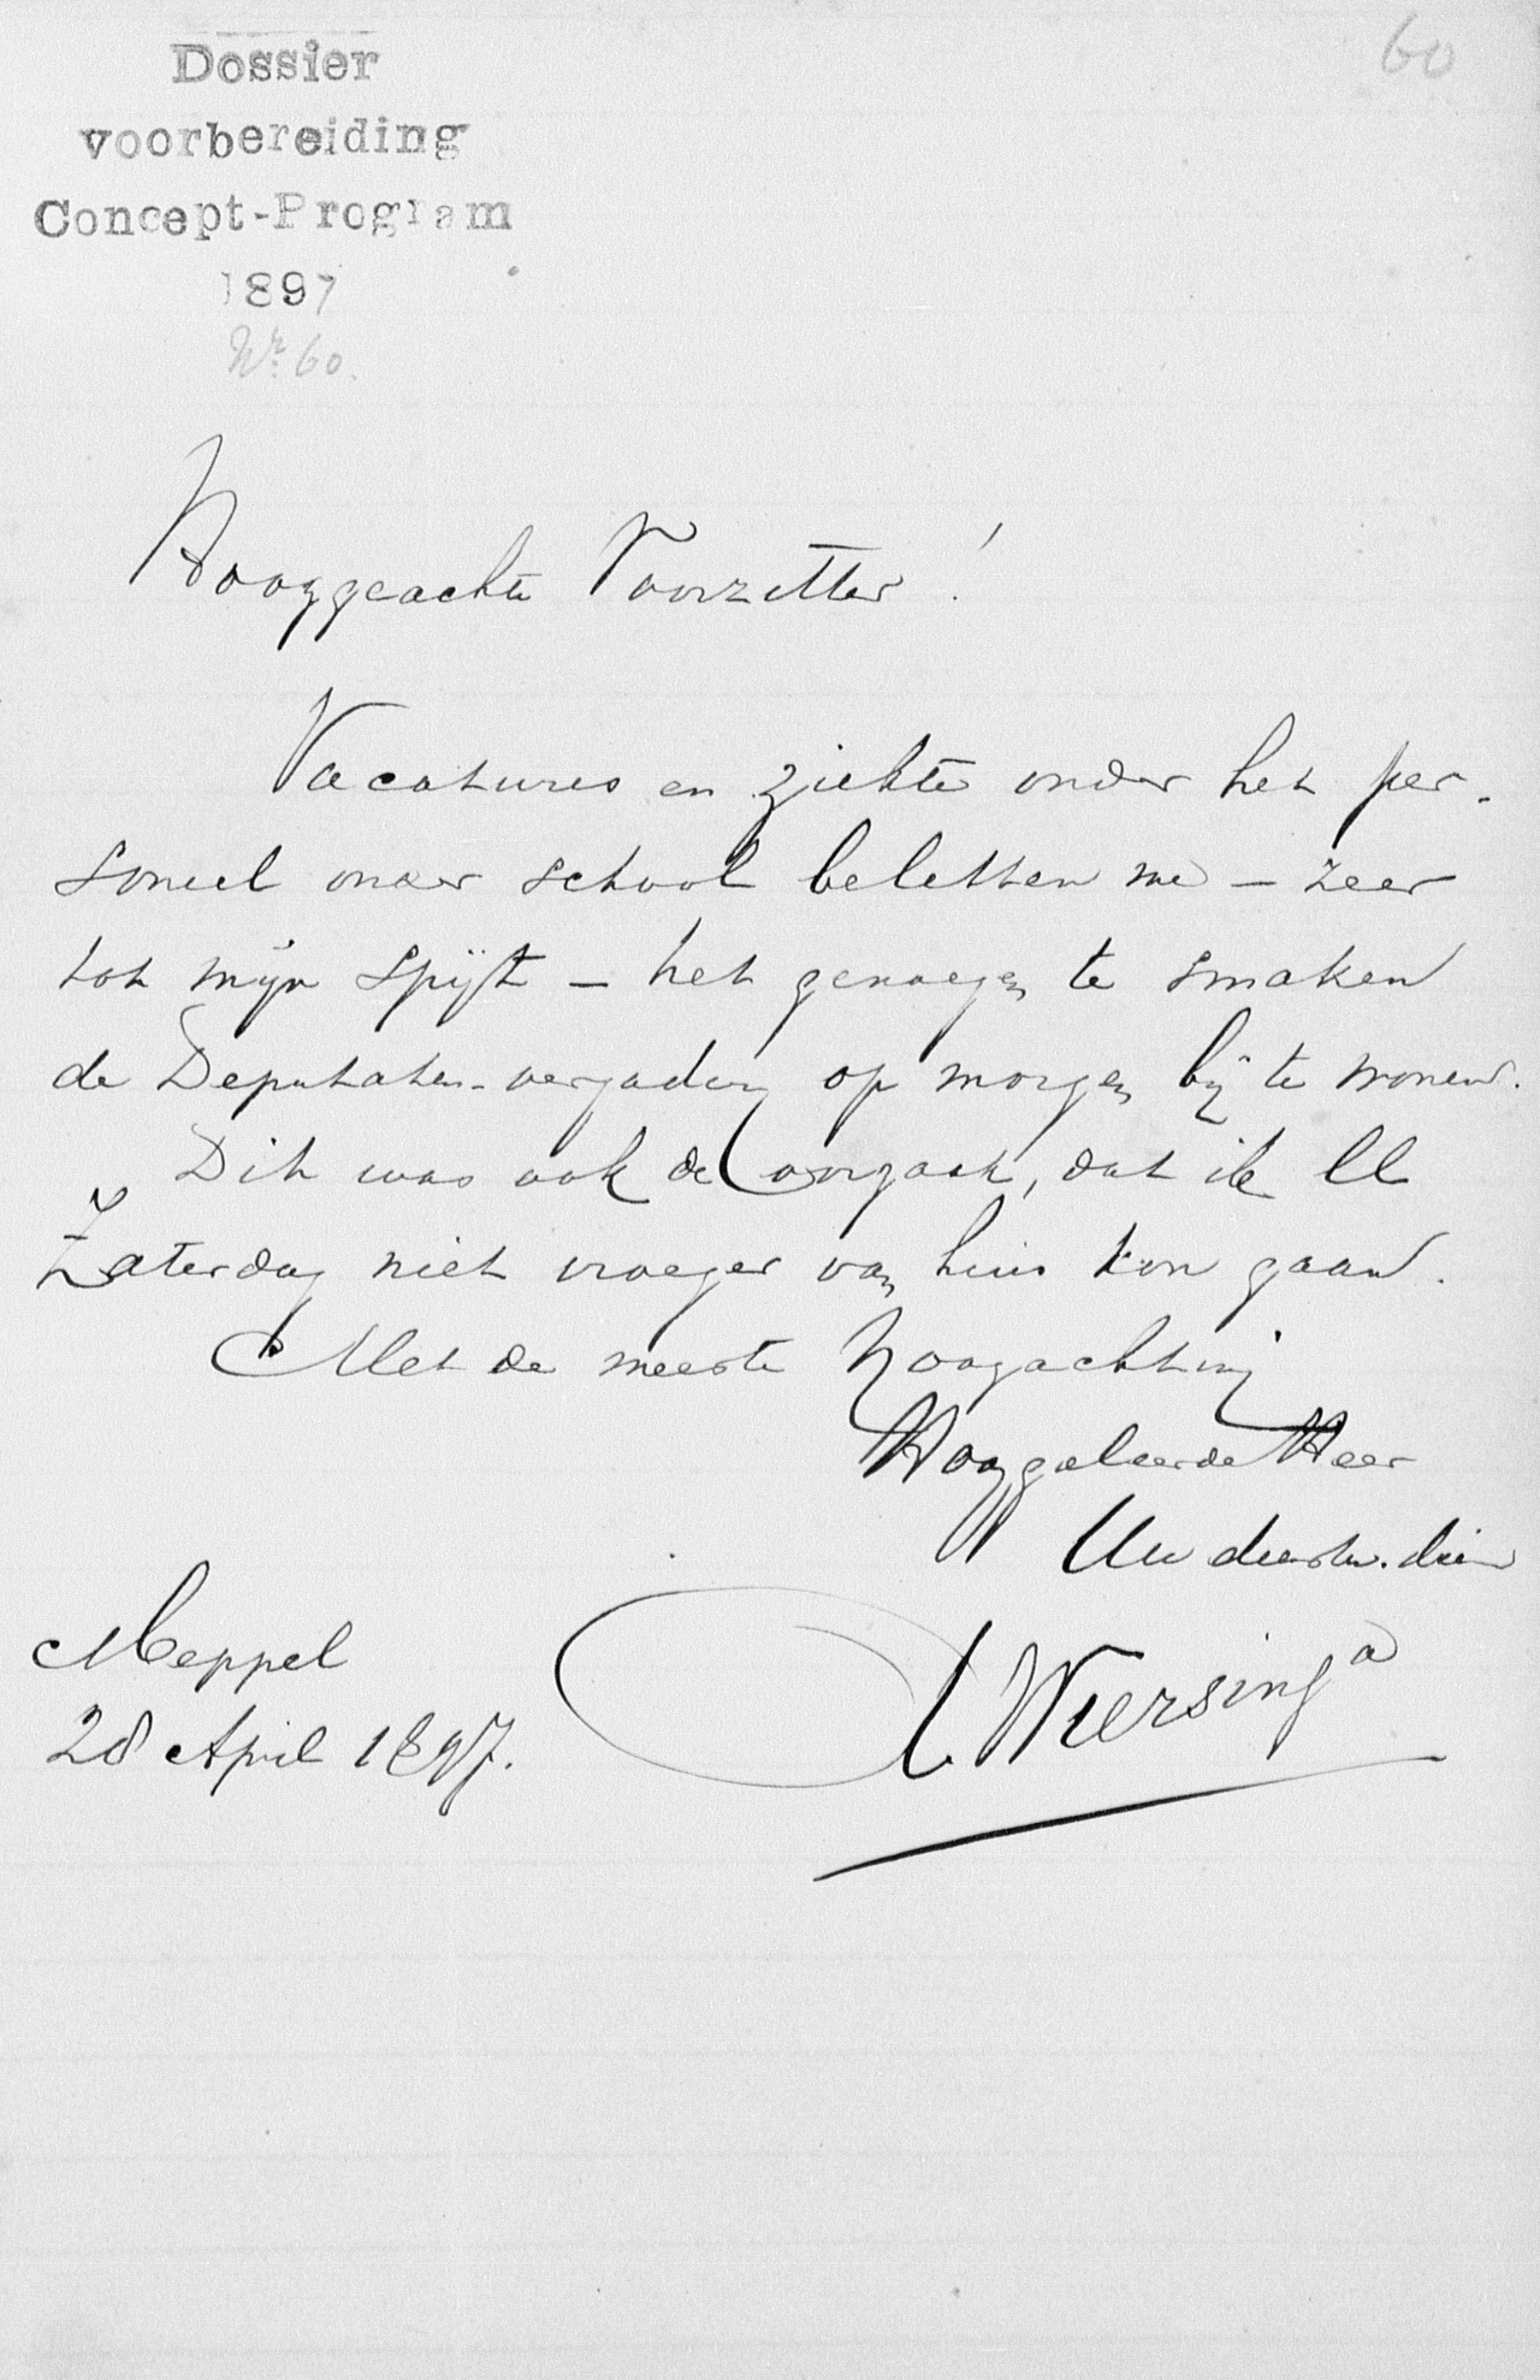 Dossier
60
voorbereiding
Concept-Program
1897
Nr. 60.
Hooggeachte Voorzitter!
Vacatures en ziekte onder het per-
soneel onzer school beletten me – zeer
tot mijn spijt – het genoegen te smaken
de Deputaten-vergadering op morgen bij te wonen.
Dit was ook de oorzaak, dat ik ll
Zaterdag niet vroeger van huis kon gaan.
Met de meeste hoogachting
Hooggeleerde Heer
Uw dienstw. dien
Meppel
Wiersinga
28 April 1897.